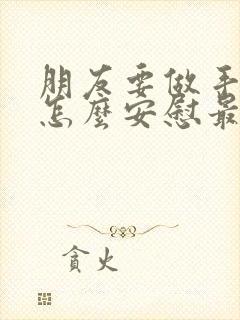 朋友要做手
怎麼安慰最
貪火